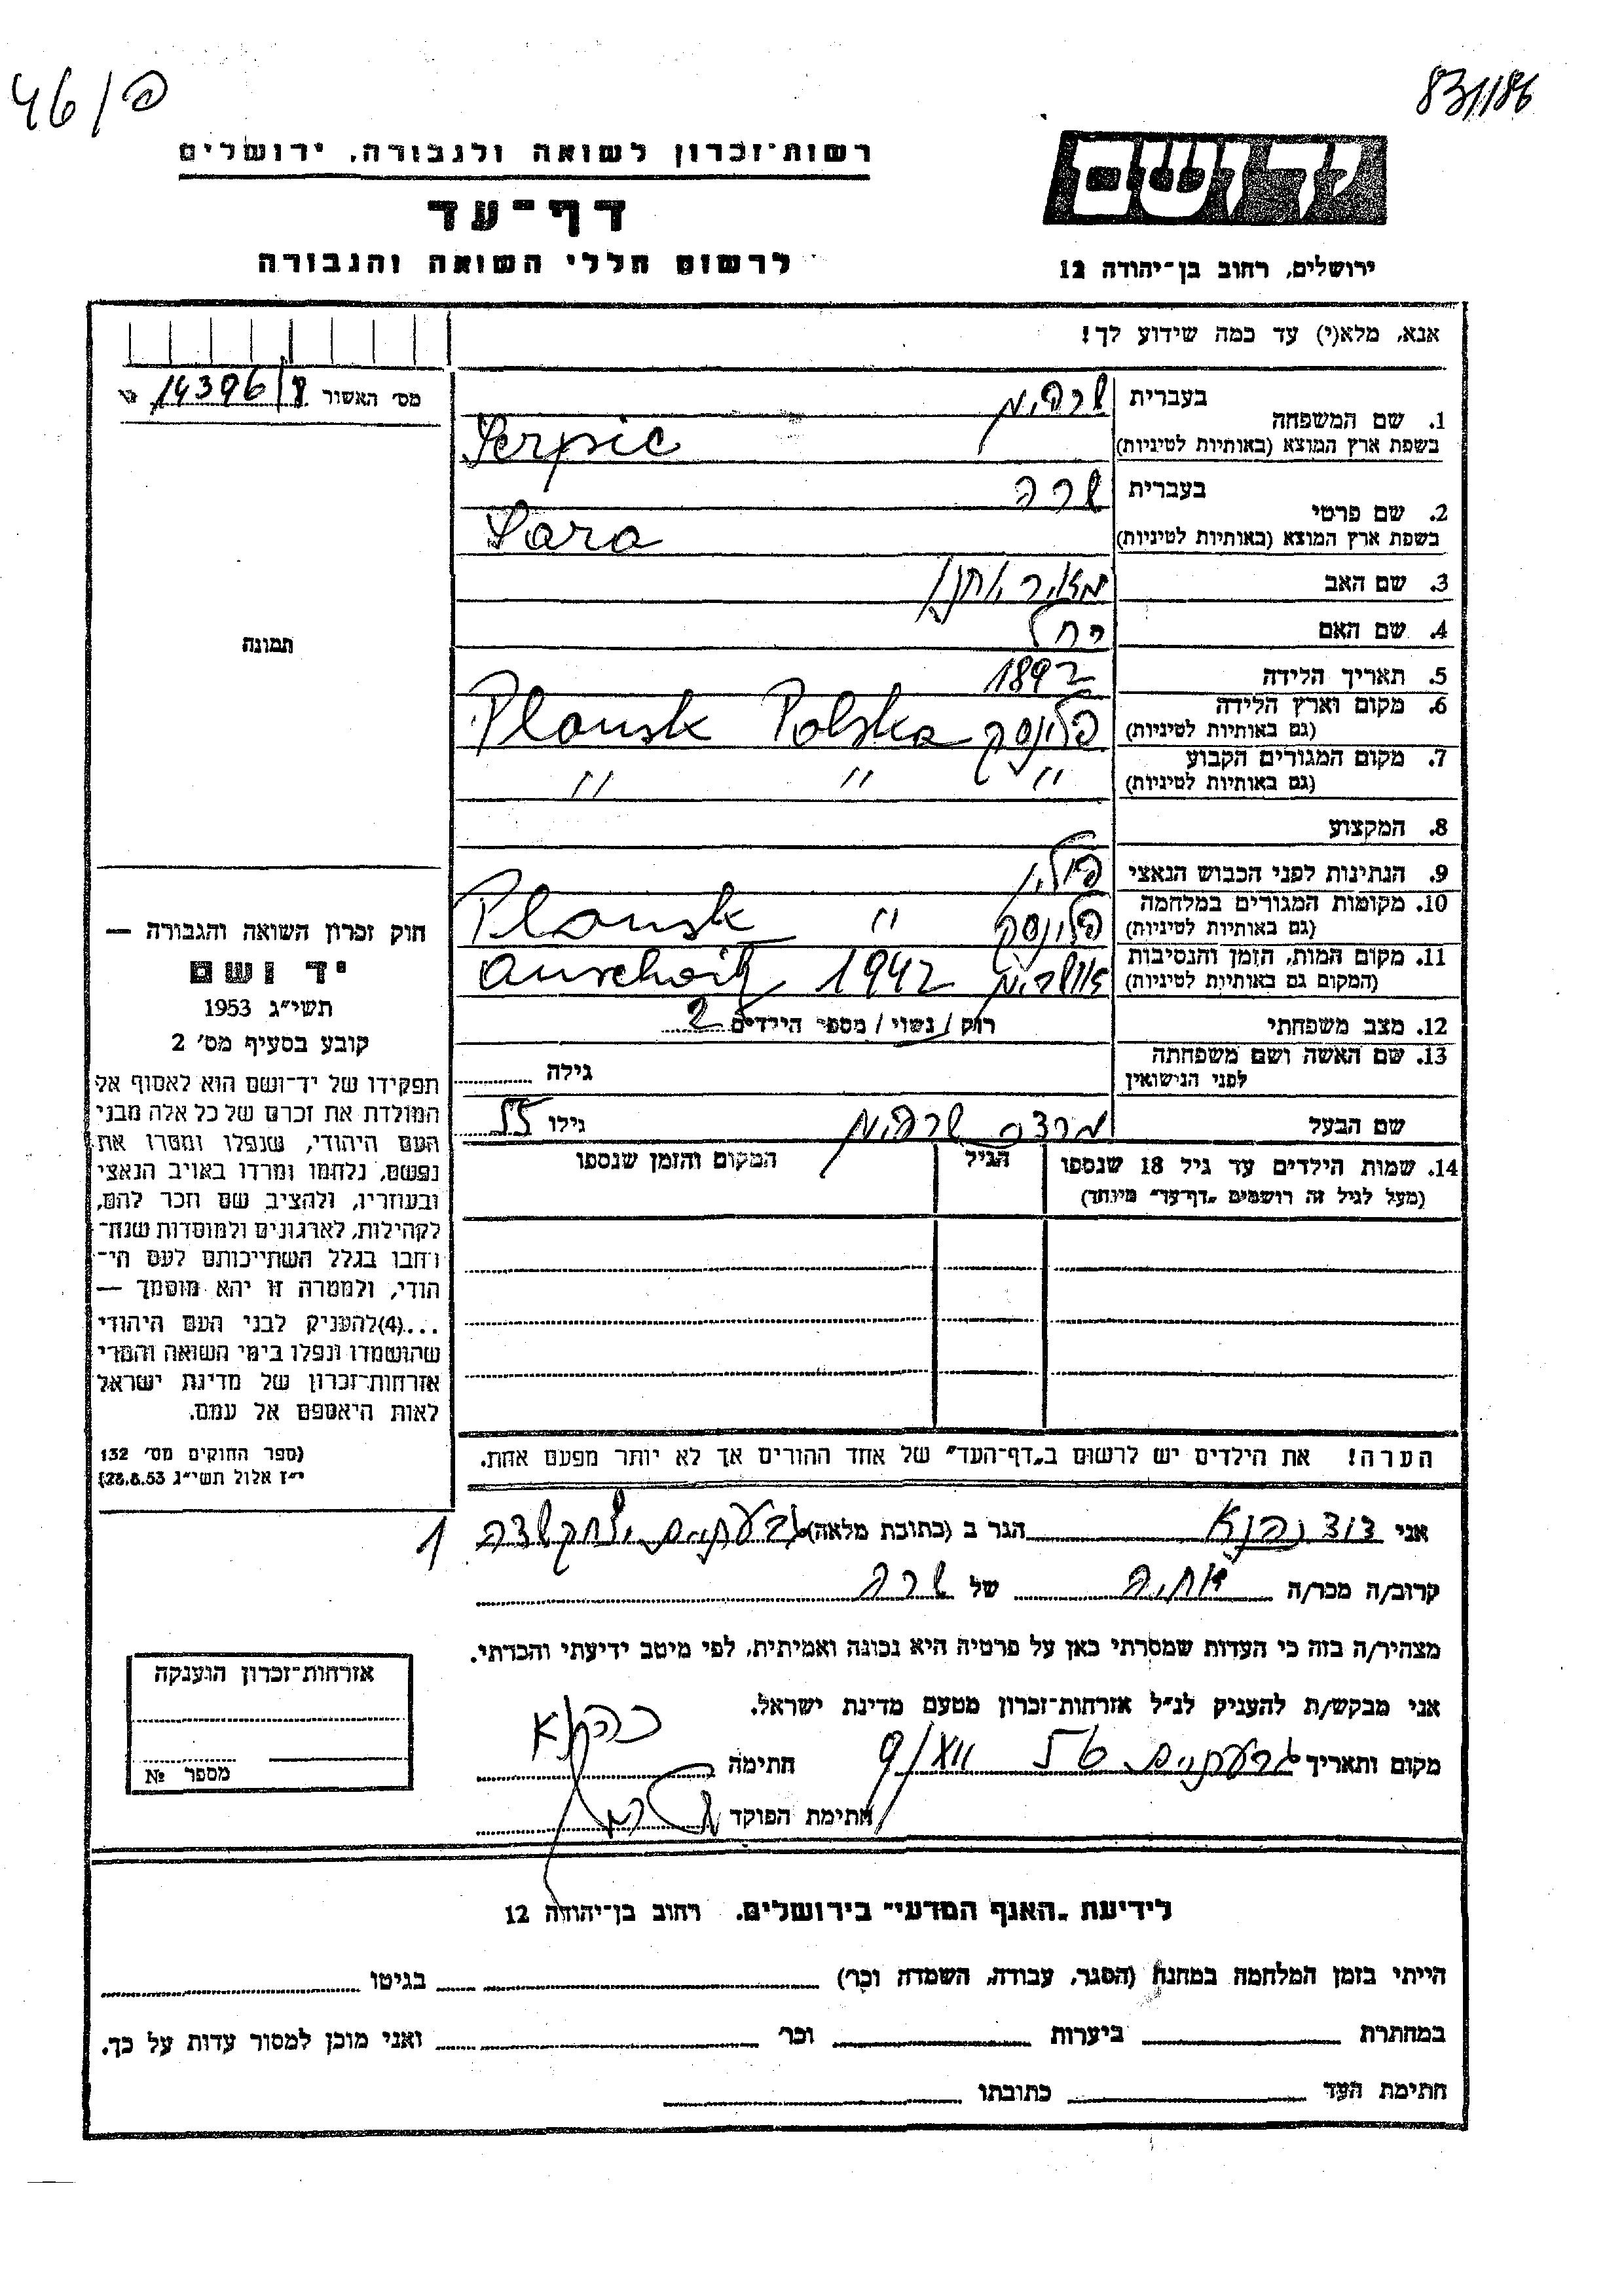 פ/46
83/186
רשות־זכרון לשואה ולגבורה, ירושלים
דף־עד
לרשום חללי השואה והגבורה
יד ושם
ירושלים, רחוב בן־יהודה 12
אנא, מלא(י) עד כמה שידוע לך!
מס׳ האשור 14396/8
1. שם המשפחה
בעברית
בשפת ארץ המוצא (באותיות לטיניות) Serpic
2. שם פרטי
בעברית שרה
בשפת ארץ המוצא (באותיות לטיניות) Sara
3. שם האב מאיר
4. שם האם רחל
5. תאריך הלידה 1892
6. מקום וארץ הלידה (גם באותיות לטיניות) פלונסק Plonsk Polska
7. מקום המגורים הקבוע (גם באותיות לטיניות) " " "
8. המקצוע
9. הנתינות לפני הכבוש הנאצי פולין
10. מקומות המגורים במלחמה (גם באותיות לטיניות) פלונסק " Plonsk
11. מקום המות, הזמן והנסיבות (המקום גם באותיות לטיניות) 1942
12. מצב משפחתי רווק / נשוי / מספר הילדים 2
13. שם האשה ושם משפחתה לפני הנישואין
גילה
שם הבעל
גילו 55
14. שמות הילדים עד גיל 18 שנספו
(מעל לגיל זה רושמים „דף־עד״ מיוחד)
הגיל
המקום והזמן שנספו
תמונה
חוק זכרון השואה והגבורה —
יד ושם
תשי״ג 1953
קובע בסעיף מס׳ 2
תפקידו של יד־ושם הוא לאסוף אל
המולדת את זכרם של כל אלה מבני
העם היהודי, שנפלו ומסרו את
נפשם, נלחמו ומרדו באויב הנאצי
ובעוזריו, ולהציב שם וזכר להם,
לקהילות, לארגונים ולמוסדות שנח־
רבו בגלל השתייכותם לעם הי־
הודי, ולמטרה זו יהא מוסמך —
...(4)להעניק לבני העם היהודי
שהושמדו ונפלו בימי השואה והמרי
אזרחות־זכרון של מדינת ישראל
לאות היאספם אל עמם.
(ספר החוקים מס׳ 132
י״ז אלול תשי״ג 28.8.53)
הערה! את הילדים יש לרשום ב„דף־העד״ של אחד ההורים אך לא יותר מפעם אחת.
אני דוד הגר ב (כתובת מלאה) גבעתיים יצחק שדה 1
קרוב/ה מכר/ה של שרה
מצהיר/ה בזה כי העדות שמסרתי כאן על פרטיה היא נכונה ואמיתית, לפי מיטב ידיעתי והכרתי.
אני מבקש/ת להעניק לנ״ל אזרחות־זכרון מטעם מדינת ישראל.
מקום ותאריך גבעתיים
חתימה
חתימת הפוקד
אזרחות־זכרון הוענקה
מספר №
לידיעת „האגף המדעי״ בירושלים. רחוב בן־יהודה 12
הייתי בזמן המלחמה במחנה (הסגר, עבודה, השמדה וכו׳) בגיטו
במחתרת ביערות וכו׳ ואני מוכן למסור עדות על כך.
חתימת העד כתובתו